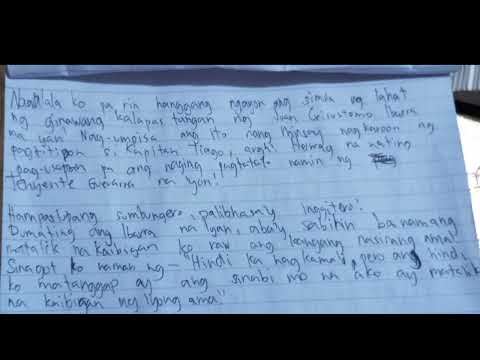 Naaalala ko pa rin hanggang ngayon ang simula ng lahat
ng ginawang kalapastangan ng Juan Crisostomo Ibarra
na yan. Nag-umpisa ang ito nang minsay nagkaroon ng
pagtitipon si Kapitan Tiago, argh! Huwag na nating
pag-usapan pa ang naging pagtatalo namin ng
Tenyente Guevarra na yon.
Hampaslupang sumbungero, palibhasa'y inggitero!
Dumating ang Ibarra na iyan, abay sabihin ba namang
matalik na kaibigan ko raw ang kanyang nasirang ama!
Sinagot ko naman ng - "Hindi ka nagkamali, pero ang hindi
ko matanggap ay ang sinabi mo na ako ay matalik
na kaibigan ng iyong ama."